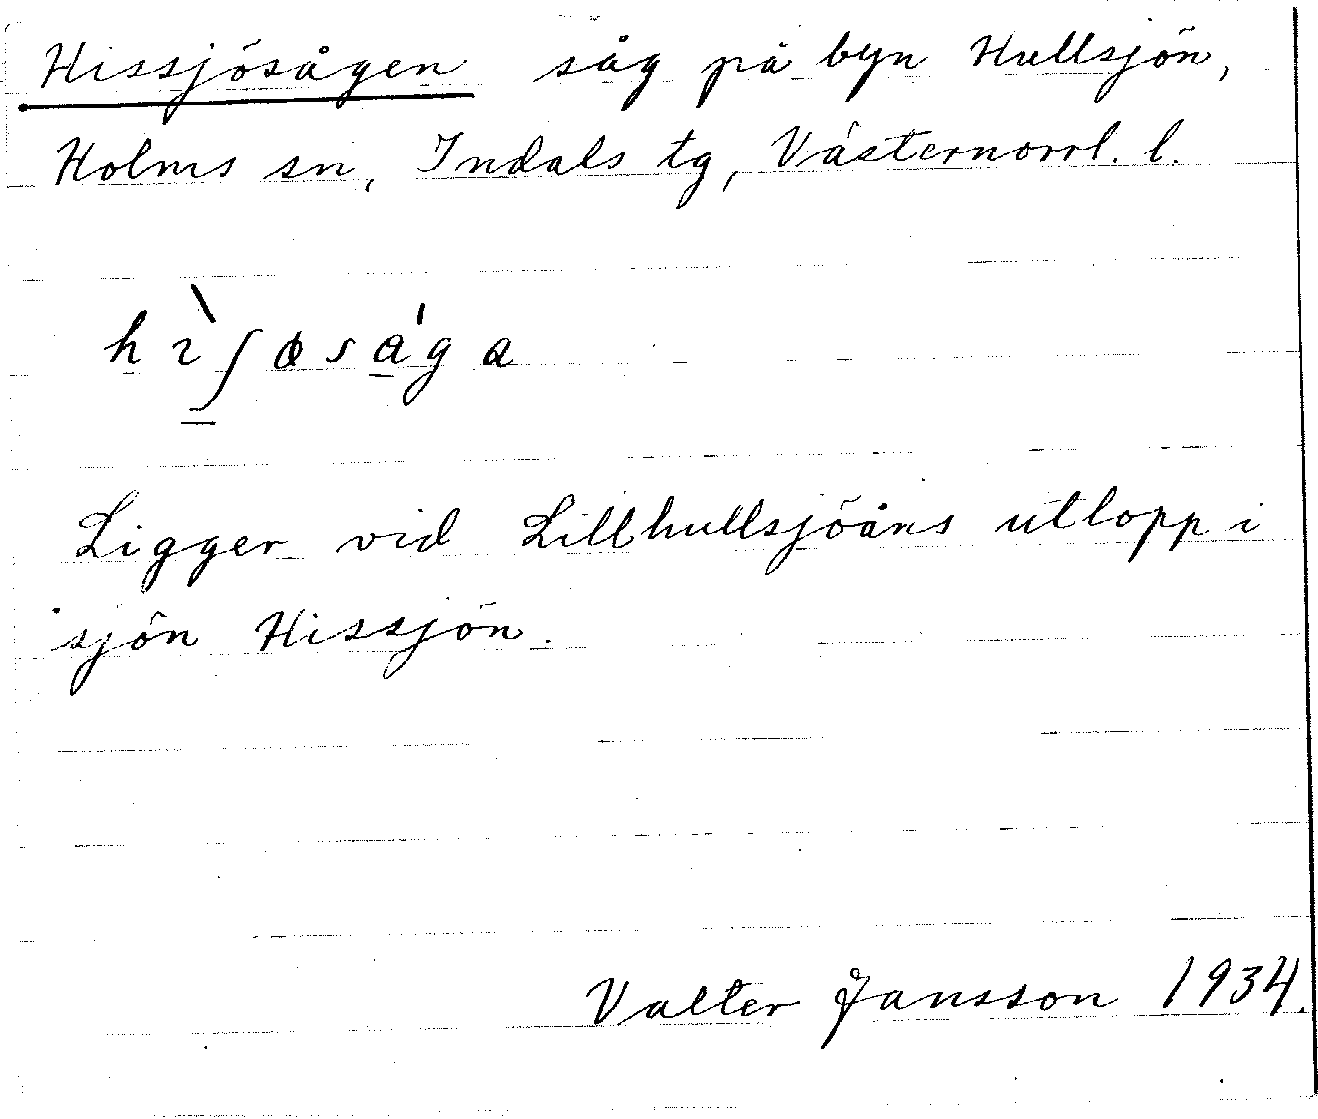 Hissjösågen såg på byn Hullsjön,
Holms sn, Indals tg, Västernorrl. l.
hı̀ʃɵsa̱̍ga
Ligger vid Lillhullsjöåns utlopp i
sjön Hissjön.
Valter Jansson 1934.